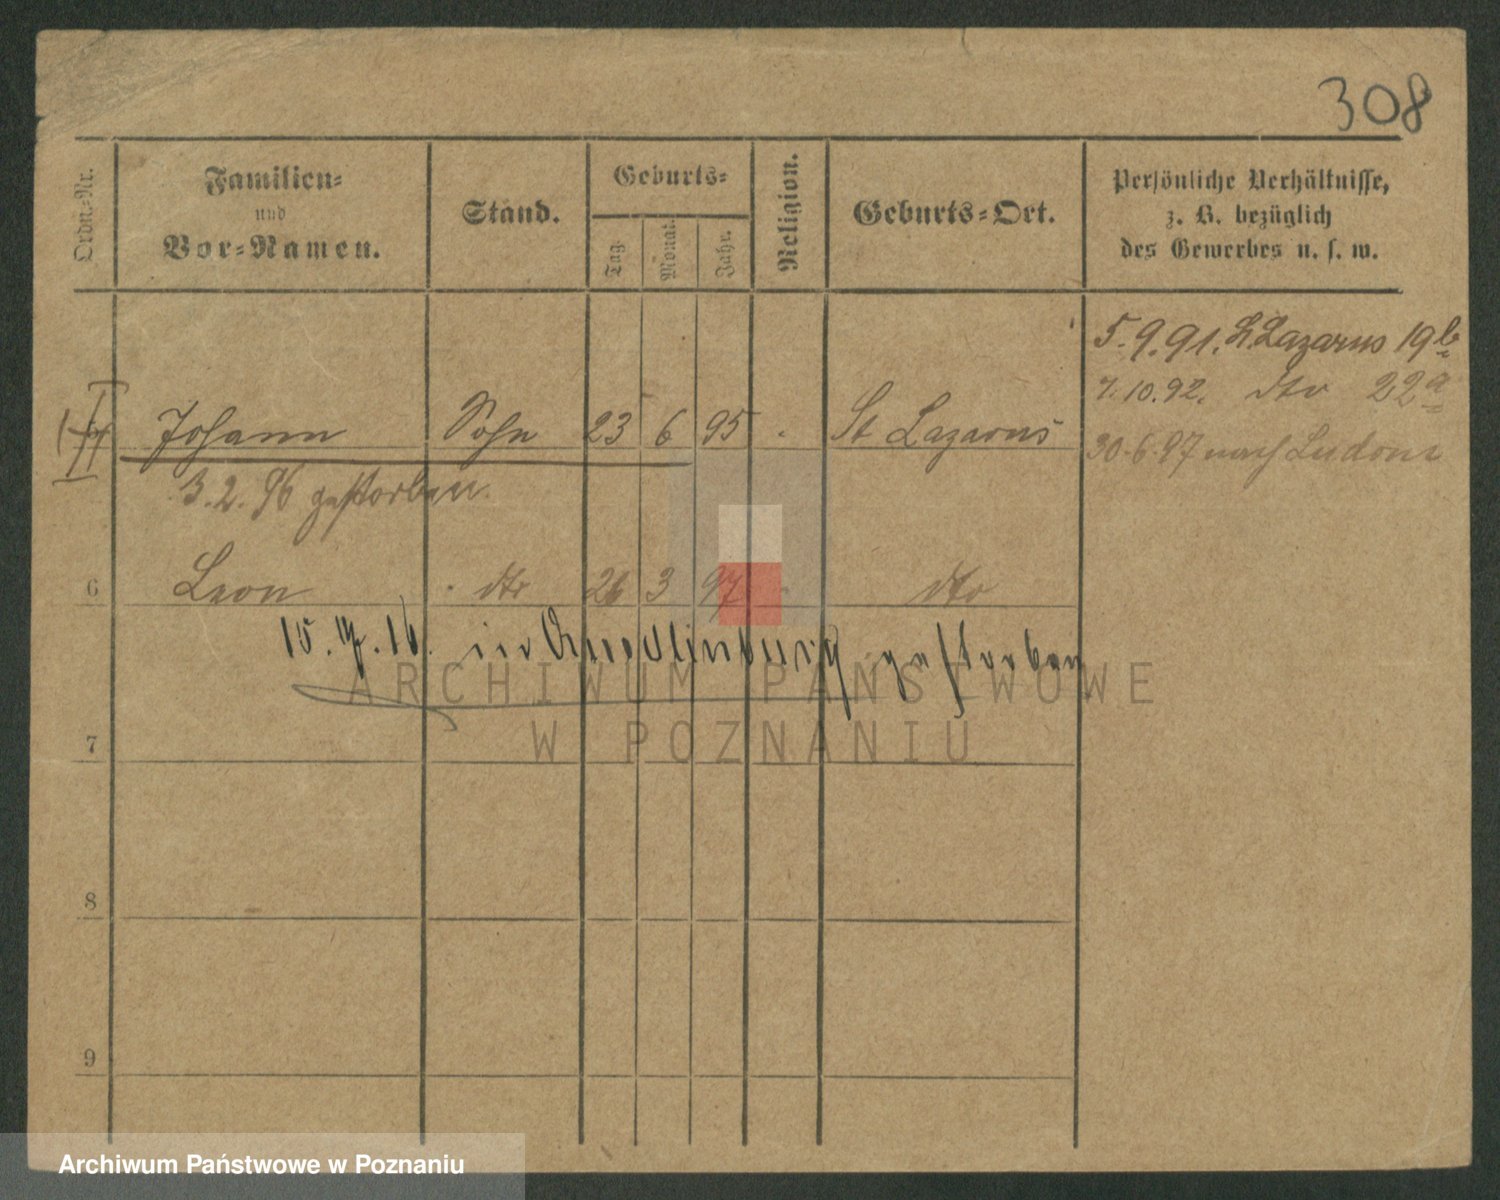 308
Ordn.-Nr.
Familien-
und
Vor-Namen.
Stand.
Geburts-
Tag.
Monat.
Jahr.
Religion.
Geburts-Ort.
Persönliche Verhältnisse,
z. B. bezüglich
des Gewerbes u. s. w.
5.9.91. St. Lazarus 19 b
7.10.92. dto 22 a
Johann Sohn 23 6 95 St Lazarus
30.6.97 nach Ludom
3.2.96 gestorben.
6 Leon dto 26 3 97 dto
in Quedlinburg gestorben
ARCHIWUM PAŃSTWOWE
W POZNANIU
7
8
9
Archiwum Państwowe w Poznaniu